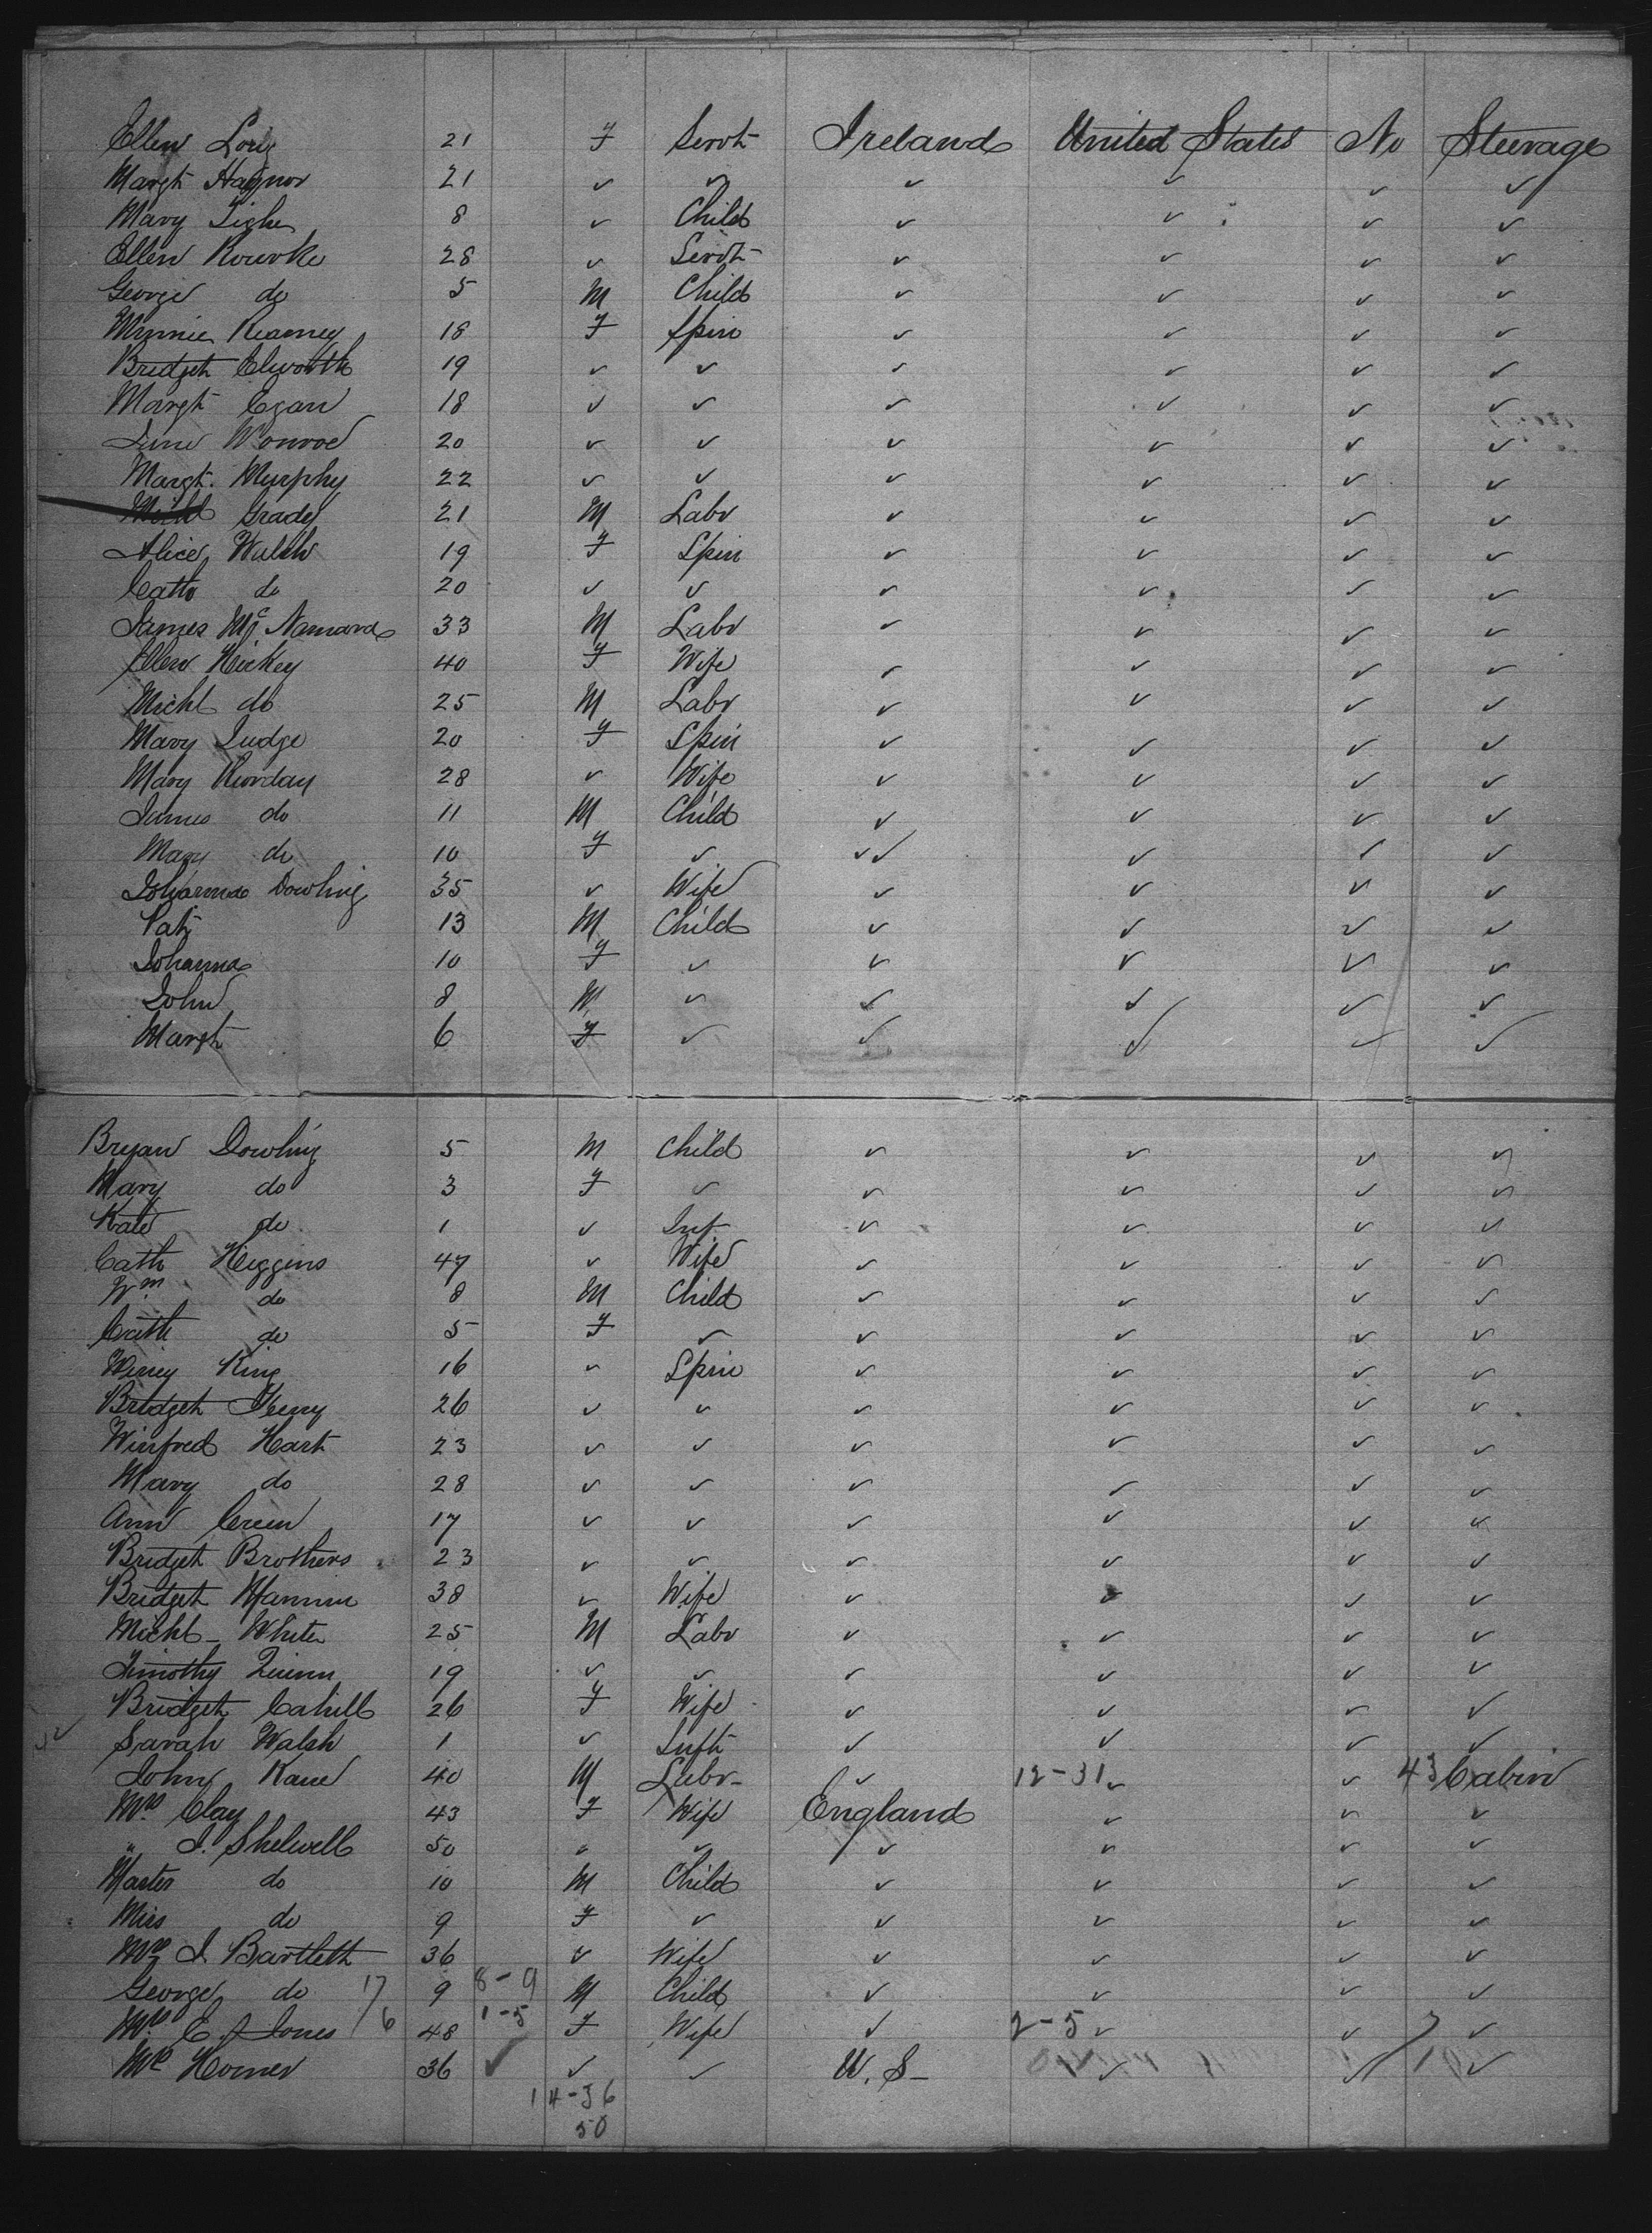 Ellen 21 F Servt Ireland United States No Steerage
Margt 21 ✓ ✓ ✓ ✓ ✓ ✓
Mary Tighe 8 ✓ Child ✓ ✓ ✓ ✓
Ellen Rourke 28 ✓ Servt ✓ ✓ ✓ ✓
George do 5 M Child ✓ ✓ ✓ ✓
Minnie Kearney 18 F Spin ✓ ✓ ✓ ✓
Bridget Elworth 19 ✓ ✓ ✓ ✓ ✓ ✓
Margt Egan 18 ✓ ✓ ✓ ✓ ✓ ✓
Jane Monroe 20 ✓ ✓ ✓ ✓ ✓ ✓
Margt. Murphy 22 ✓ ✓ ✓ ✓ ✓ ✓
Michl Grady 21 M Labr ✓ ✓ ✓ ✓
Alice Walsh 19 F Spin ✓ ✓ ✓ ✓
Cath do 20 ✓ ✓ ✓ ✓ ✓ ✓
James Mc Namara 33 M Labr ✓ ✓ ✓ ✓
Ellen Hickey 40 F Wife ✓ ✓ ✓ ✓
Michl do 25 M Labr ✓ ✓ ✓ ✓
Mary Judge 20 F Spin ✓ ✓ ✓ ✓
Mary 28 ✓ Wife ✓ ✓ ✓ ✓
James do 11 M Child ✓ ✓ ✓ ✓
Mary do 10 F ✓ ✓✓ ✓ ✓ ✓
Johanna Dowling 35 ✓ Wife ✓ ✓ ✓ ✓
Pat 13 M Child ✓ ✓ ✓ ✓
Johanna 10 F ✓ ✓ ✓ ✓ ✓
John 8 M ✓ ✓ ✓ ✓ ✓
Margt 6 F ✓ ✓ ✓ ✓ ✓
Bryan Dowling 5 M Child ✓ ✓ ✓ ✓
Mary do 3 F ✓ ✓ ✓ ✓ ✓
Kate do 1 ✓ Inf ✓ ✓ ✓ ✓
Cath Higgins 47 ✓ Wife ✓ ✓ ✓ ✓
Wm do 8 M Child ✓ ✓ ✓ ✓
Cath do 5 F ✓ ✓ ✓ ✓ ✓
King 16 ✓ Spin ✓ ✓ ✓ ✓
Bridget 26 ✓ ✓ ✓ ✓ ✓ ✓
Winfred Hart 23 ✓ ✓ ✓ ✓ ✓ ✓
Mary do 28 ✓ ✓ ✓ ✓ ✓ ✓
Ann Creen 17 ✓ ✓ ✓ ✓ ✓ ✓
Bridget Brothers 23 ✓ ✓ ✓ ✓ ✓ ✓
Bridget Mannin 38 ✓ Wife ✓ ✓ ✓ ✓
Michl White 25 M Labr ✓ ✓ ✓ ✓
Timothy Quinn 19 ✓ ✓ ✓ ✓ ✓ ✓
Bridget Cahill 26 F Wife ✓ ✓ ✓ ✓
Sarah Walsh 1 ✓ Inft ✓ ✓ ✓ ✓
John Kane 40 M Labr ✓ 12-31 ✓ ✓ 43 Cabin
Mrs Clay 43 F Wife England ✓ ✓ ✓
" J. Shelwell 50 " ✓ ✓ ✓ ✓ ✓
Master do 10 M Child ✓ ✓ ✓ ✓
Miss do 9 F ✓ ✓ ✓ ✓ ✓
Mrs J. Bartlett 36 ✓ Wife ✓ ✓ ✓ ✓
George do 17 9 8-9 M Child ✓ ✓ ✓ ✓
Mrs E. Jones 6 48 1-5 F Wife ✓ 2-5 ✓ ✓ 7 ✓
Horner 36 ✓ ✓ ✓ U.S- ✓ ✓ ✓
14-36
50